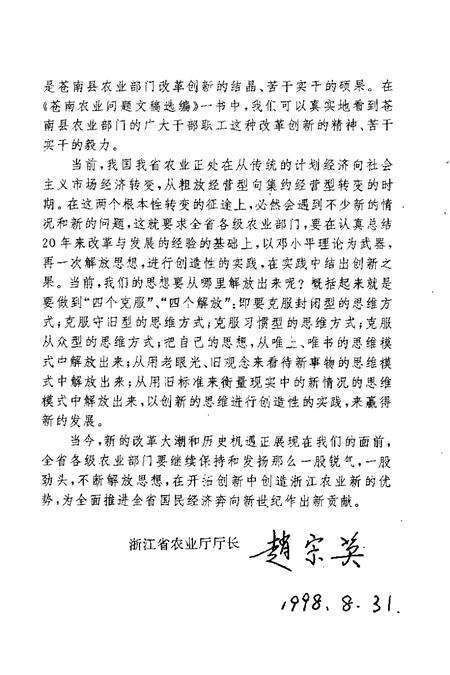 是苍南县农业部门改革创新的结晶、苦干实干的硕果。在
《苍南农业问题文稿选编》一书中，我们可以真实地看到苍
南县农业部门的广大干部职工这种改革创新的精神、苦干
实干的毅力。
当前，我国我省农业正处在从传统的计划经济向社会
主义市场经济转变，从粗放经营型向集约经营型转变的时
期。在这两个根本性转变的征途上，必然会遇到不少新的情
况和新的问题，这就要求全省各级农业部门，要在认真总结
20年来改革与发展的经验的基础上，以邓小平理论为武器，
再一次解放思想，进行创造性的实践，在实践中结出创新之
果。当前，我们的思想要从哪里解放出来呢？概括起来就是
要做到“四个克服”、“四个解放”：即要克服封闭型的思维方
式；克服守旧型的思维方式；克服习惯型的思维方式；克服
从众型的思维方式；把自己的思想，从唯上、唯书的思维模
式中解放出来；从用老眼光、旧观念来看待新事物的思维模
式中解放出来；从用旧标准来衡量现实中的新情况的思维
模式中解放出来，以创新的思维进行创造性的实践，来赢得
新的发展。
当今，新的改革大潮和历史机遇正展现在我们的面前，
全省各级农业部门要继续保持和发扬那么一股锐气，一股
劲头，不断解放思想，在开拓创新中创造浙江农业新的优
势，为全面推进全省国民经济奔向新世纪作出新贡献。
浙江省农业厅厅长 趙宗英
1998.8.31.